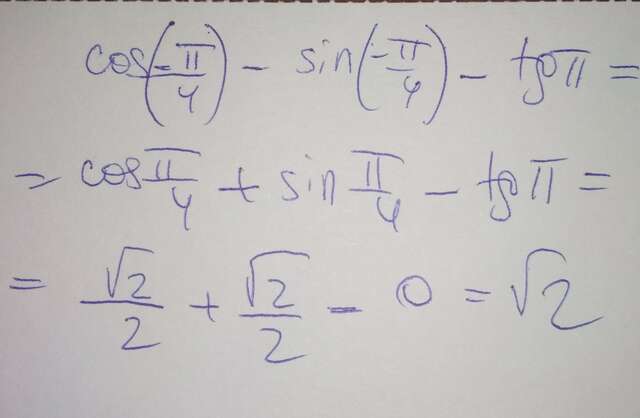 cos(-π/4) - sin(-π/4) - tgπ =
= cos π/4 + sin π/4 - tgπ =
= √2/2 + √2/2 - 0 = √2